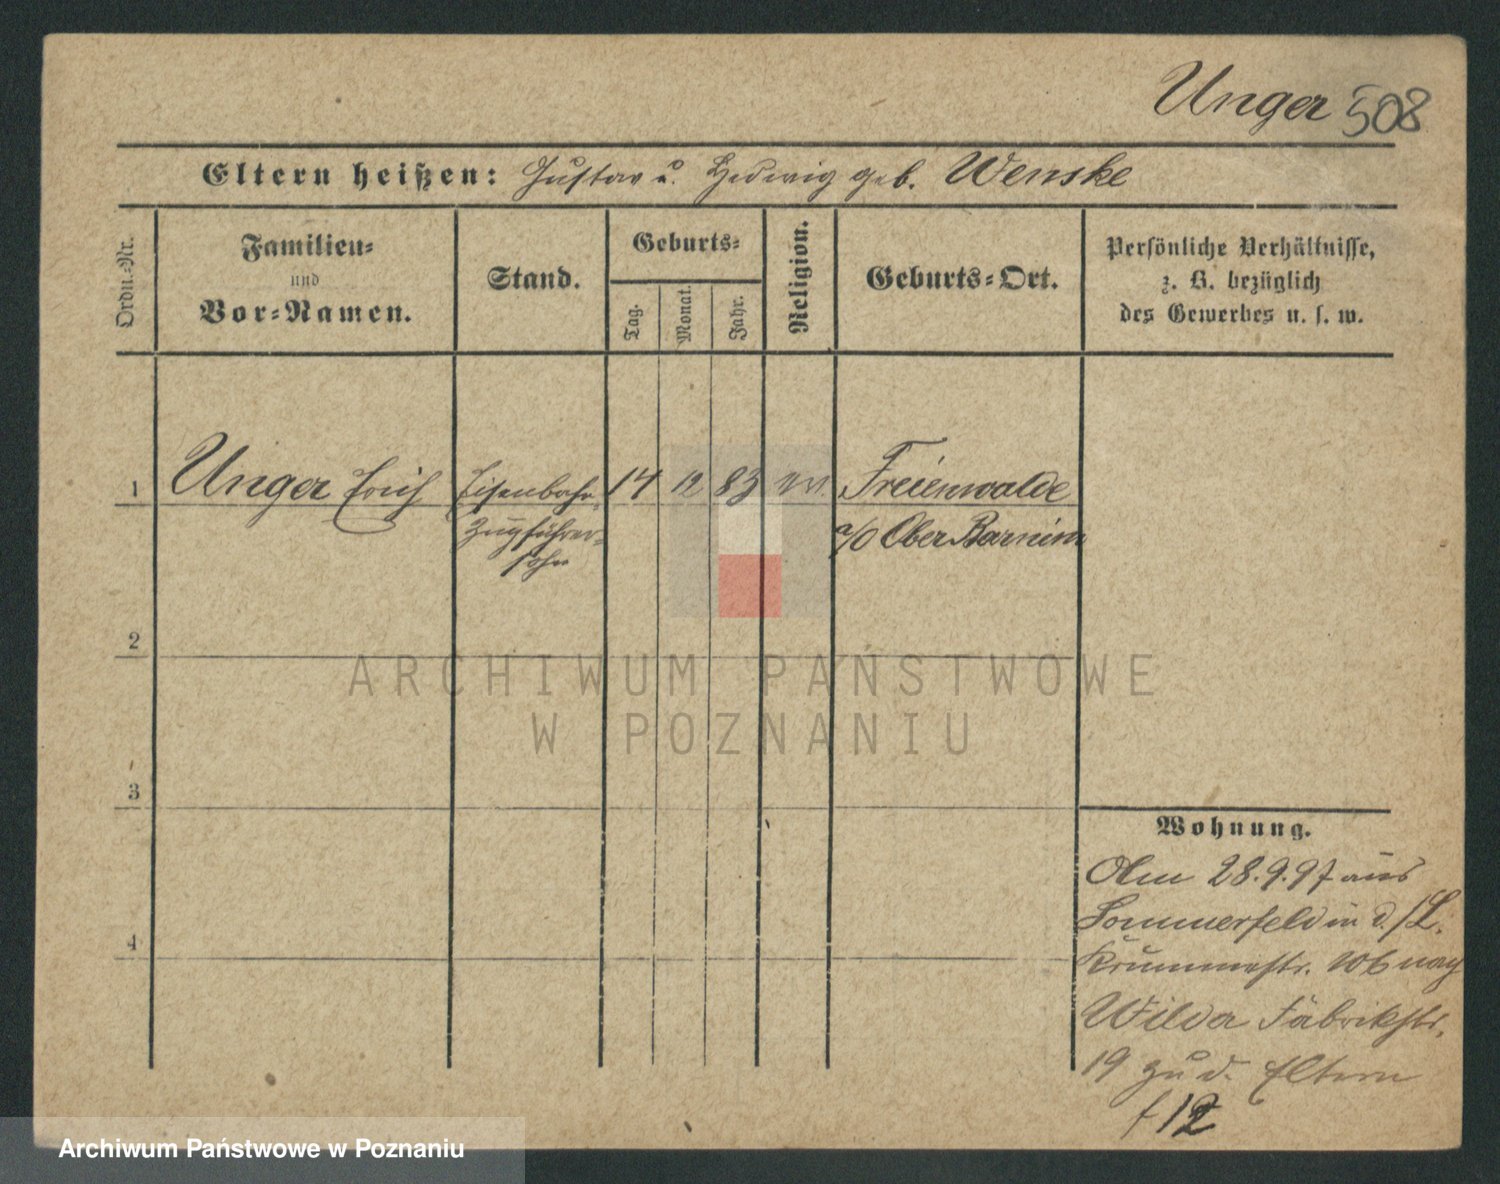 Unger 508
Eltern heißen: Gustav u. Hedwig geb. Wenske
Ordn.-Nr.
Familien-
und
Vor-Namen.
Stand.
Geburts-
Tag.
Monat.
Jahr.
Religion.
Geburts-Ort.
Persönliche Verhältnisse,
z. B. bezüglich
des Gewerbes u. s. w.
1 Unger Erich Eisenbahn- 14 12 83 ev. Freienwalde
Zugführer- a/O Ober Barnim
sohn
2
3
4
Wohnung.
Am 28.9.97 aus
Sommerfeld in d./L.
Krummestr. 106 nach
Wilda Fabrikstr.
19 zu d. Eltern
f 12
ARCHIWUM PAŃSTWOWE
W POZNANIU
Archiwum Państwowe w Poznaniu